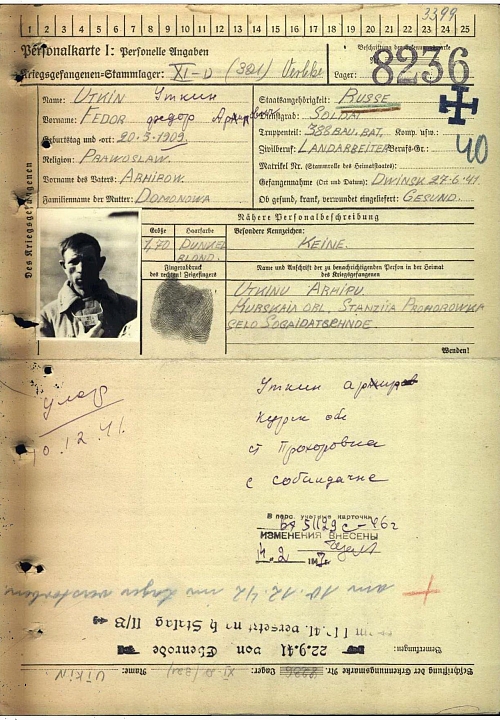 3399
1 2 3 4 5 6 7 8 9 10 11 12 13 14 15 16 17 18 19 20 21 22 23 24 25
Personalkarte I: Personelle Angaben
Beschriftung der Erkennungsmarke
Kriegsgefangenen-Stammlager: XI-D (321)
Lager:
8236
Des Kriegsgefangenen
Name: UTKIN Уткин
Vorname: FEDOR Федор
Geburtstag und -ort 20-3-1909
Religion: PRAWOSLAW.
Vorname des Vaters: ARHIPOW.
Familienname der Mutter: DOMONOWA
Staatsangehörigkeit: RUSSE
Dienstgrad: SOLDAT
Truppenteil: 388 BAU. BAT. Komp. usw.:
Zivilberuf: LANDARBEITER Berufs-Gr.:
40
Matrikel Nr. (Stammrolle des Heimatstaates):
Gefangennahme (Ort und Datum): DWINSK 27-6-41.
Ob gesund, krank, verwundet eingeliefert: GESUND.
Nähere Personalbeschreibung
Größe Haarfarbe Besondere Kennzeichen:
1,70 DUNKEL BLOND. KEINE.
Fingerabdruck des rechten! Zeigefingers
Name und Anschrift der zu benachrichtigenden Person in der Heimat des Kriegsgefangenen
UTKINU ARHIPU
KURSKAIA OBL. STANZIIA PROHOROWKA
SELO
Wenden!
Уткин
Курск обл
ст Прохоровка
с
12.41.
В перс. учетные карточки
ИЗМЕНЕНИЯ ВНЕСЕНЫ
am 10.12.42 im Lager verstorben
versetzt n. Stalag
Bemerkungen: 22.9.41 von Ebenrode
Beschriftung der Erkennungsmarke Nr. 8236 Lager: XI-D (321) Name: UTKIN